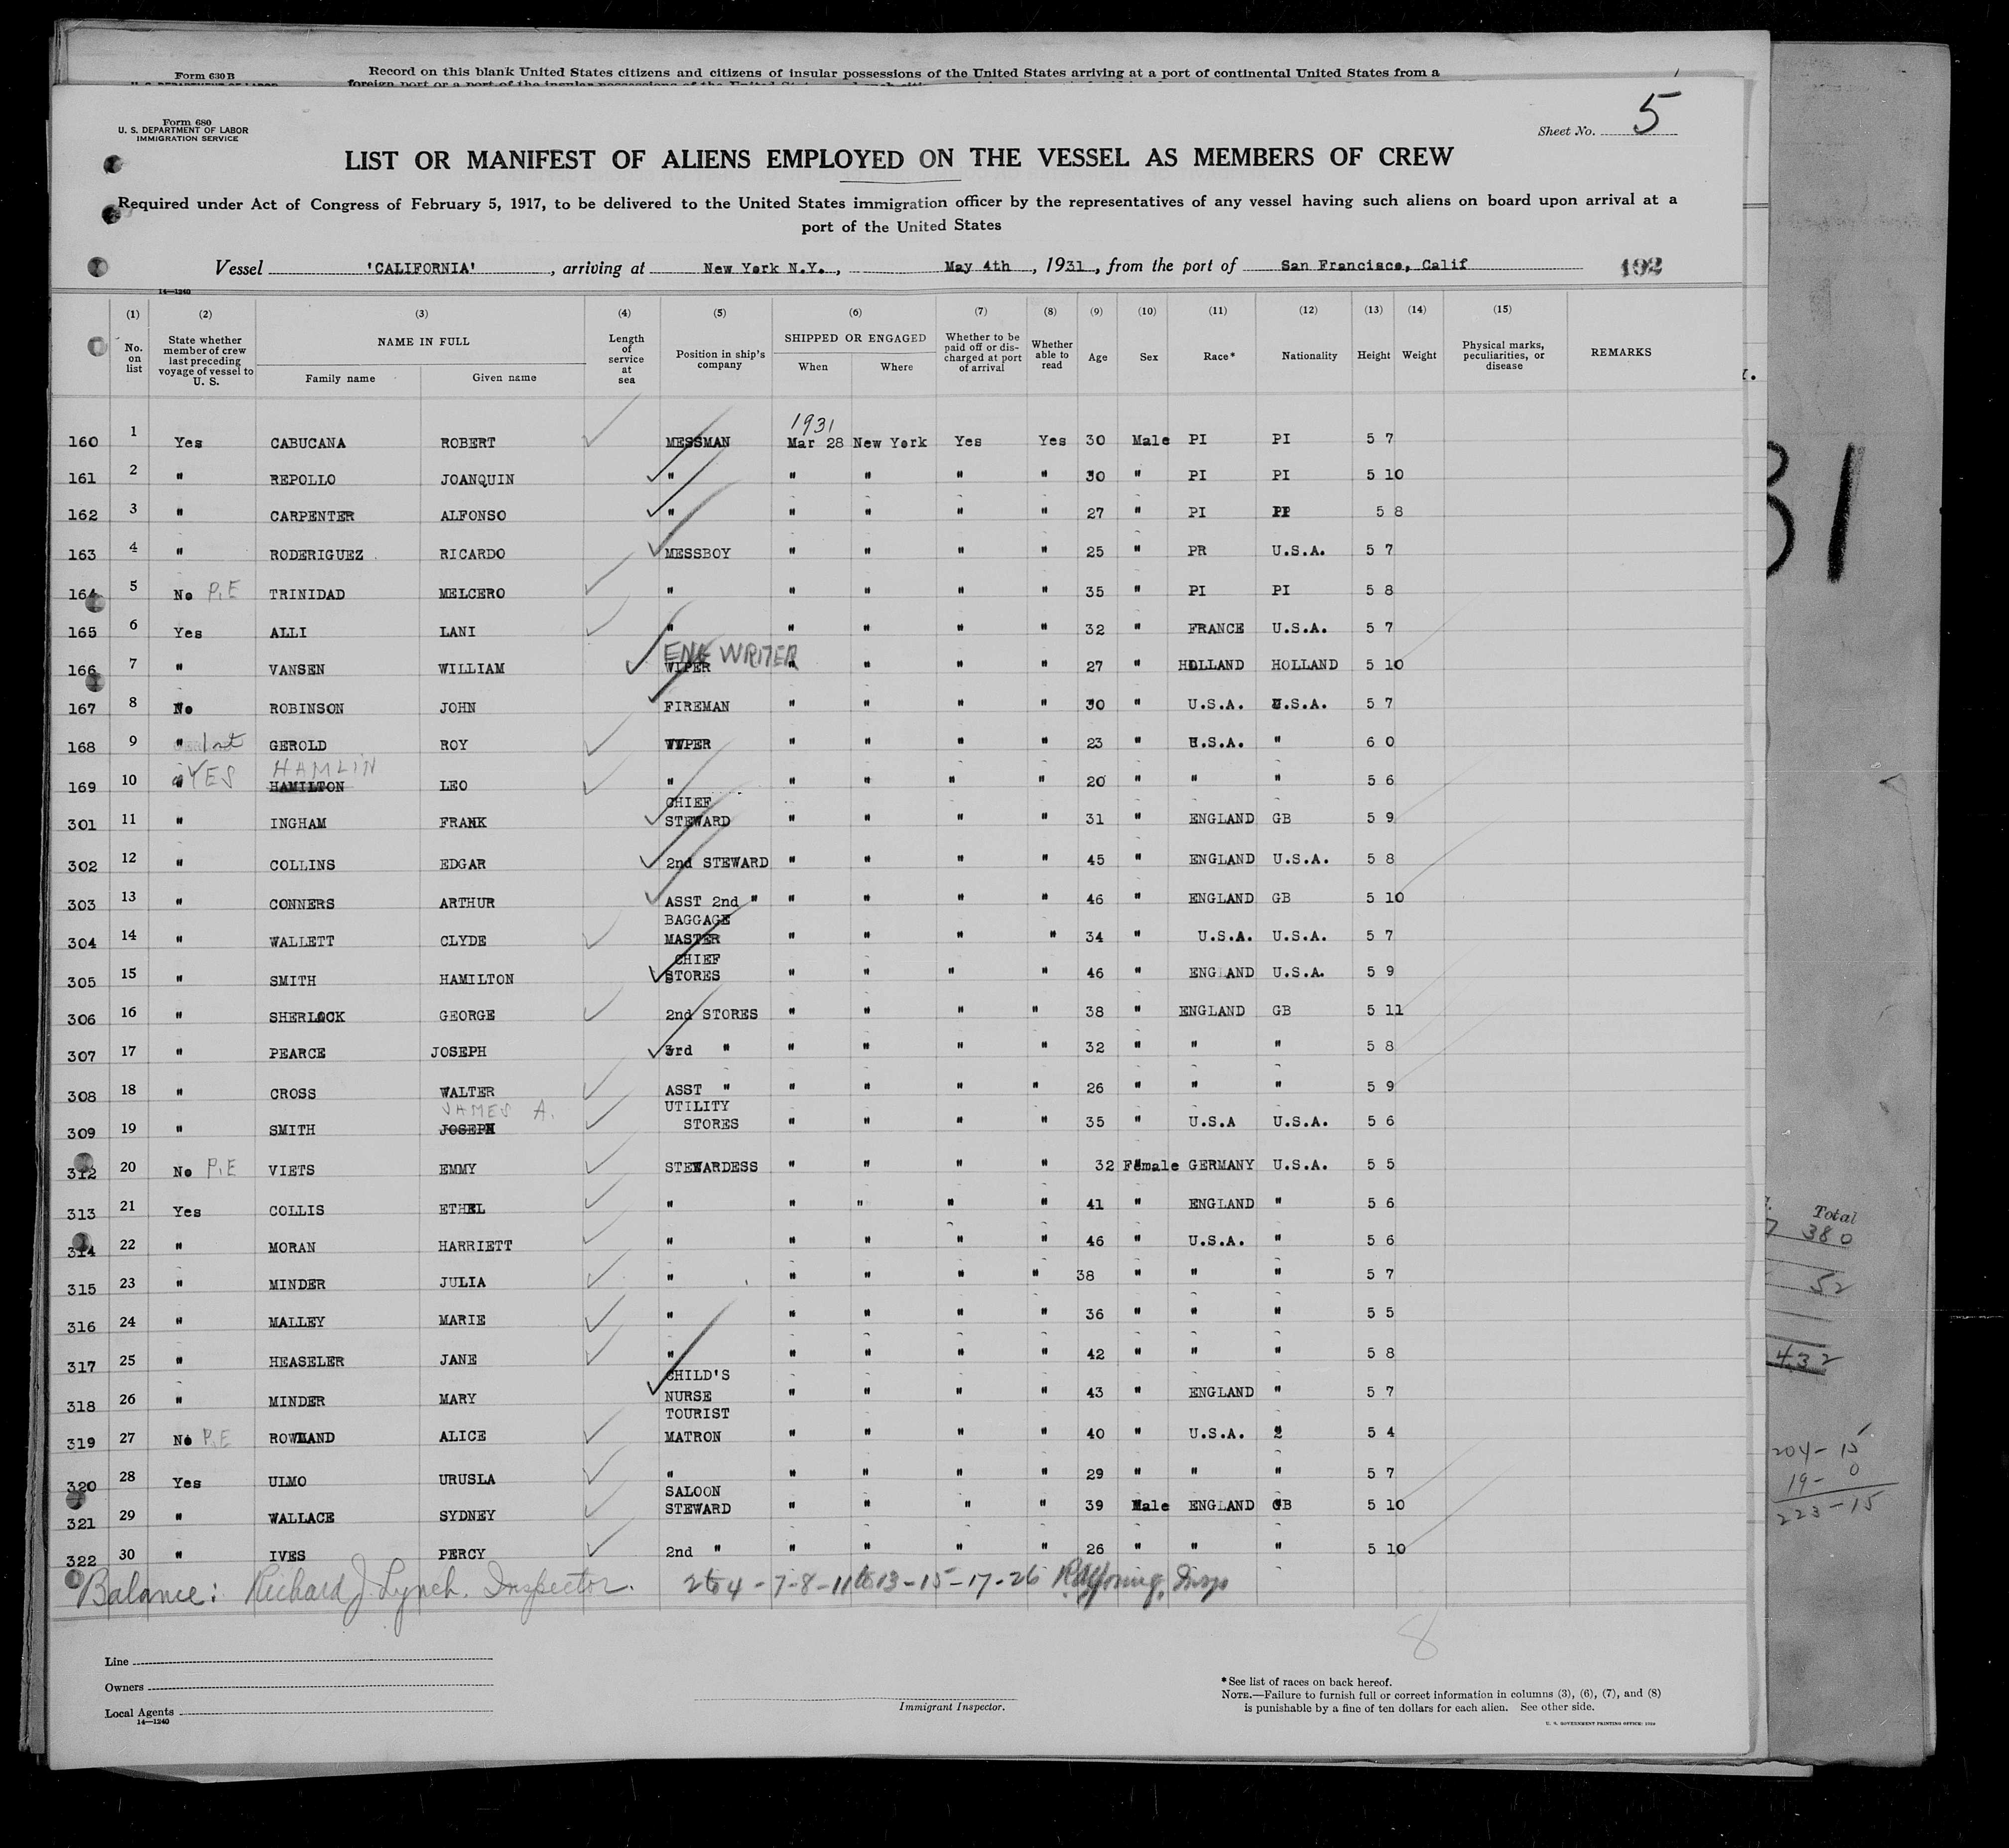 Form 630 B
Record on this blank United States citizens and citizens of insular possessions of the United States arriving at a port of continental United States from a
Form 680
U. S. DEPARTMENT OF LABOR
IMMIGRATION SERVICE
Sheet No. 5
LIST OR MANIFEST OF ALIENS EMPLOYED ON THE VESSEL AS MEMBERS OF CREW
Required under Act of Congress of February 5, 1917, to be delivered to the United States immigration officer by the representatives of any vessel having such aliens on board upon arrival at a
port of the United States
Vessel 'CALIFORNIA', arriving at New York N.Y., May 4th, 1931, from the port of San Francisco, Calif 192
14—1240
(1) No. on list (2) State whether member of crew last preceding voyage of vessel to U. S. (3) NAME IN FULL Family name Given name (4) Length of service at sea (5) Position in ship's company (6) SHIPPED OR ENGAGED When Where (7) Whether to be paid off or discharged at port of arrival (8) Whether able to read (9) Age (10) Sex (11) Race* (12) Nationality (13) Height (14) Weight (15) Physical marks, peculiarities, or disease REMARKS
1931
160 1 Yes CABUCANA ROBERT MESSMAN Mar 28 New York Yes Yes 30 Male PI PI 5 7
161 2 " REPOLLO JOANQUIN " " " " " 30 " PI PI 5 10
162 3 " CARPENTER ALFONSO " " " " " 27 " PI PI 5 8
163 4 " RODERIGUEZ RICARDO MESSBOY " " " " 25 " PR U.S.A. 5 7
164 5 No P.E TRINIDAD MELCERO " " " " " 35 " PI PI 5 8
165 6 Yes ALLI LANI " " " " " 32 " FRANCE U.S.A. 5 7
ENG WRITER
166 7 " VANSEN WILLIAM WIPER " " " " 27 " HOLLAND HOLLAND 5 10
167 8 No ROBINSON JOHN FIREMAN " " " " 30 " U.S.A. U.S.A. 5 7
168 9 " 1st GEROLD ROY WIPER " " " " 23 " U.S.A. " 6 0
HAMLIN
169 10 " YES HAMILTON LEO " " " " " 20 " " " 5 6
301 11 " INGHAM FRANK CHIEF STEWARD " " " " 31 " ENGLAND GB 5 9
302 12 " COLLINS EDGAR 2nd STEWARD " " " " 45 " ENGLAND U.S.A. 5 8
303 13 " CONNERS ARTHUR ASST 2nd " " " " " 46 " ENGLAND GB 5 10
304 14 " WALLETT CLYDE BAGGAGE MASTER " " " " 34 " U.S.A. U.S.A. 5 7
305 15 " SMITH HAMILTON CHIEF STORES " " " " 46 " ENGLAND U.S.A. 5 9
306 16 " SHERLOCK GEORGE 2nd STORES " " " " 38 " ENGLAND GB 5 11
307 17 " PEARCE JOSEPH 3rd " " " " " 32 " " " 5 8
308 18 " CROSS WALTER ASST " " " " " 26 " " " 5 9
JAMES A.
309 19 " SMITH JOSEPH UTILITY STORES " " " " 35 " U.S.A U.S.A. 5 6
312 20 No P.E VIETS EMMY STEWARDESS " " " " 32 Female GERMANY U.S.A. 5 5
313 21 Yes COLLIS ETHEL " " " " " 41 " ENGLAND " 5 6
314 22 " MORAN HARRIETT " " " " " 46 " U.S.A. " 5 6
315 23 " MINDER JULIA " " " " " 38 " " " 5 7
316 24 " MALLEY MARIE " " " " " 36 " " " 5 5
317 25 " HEASELER JANE " " " " " 42 " " " 5 8
318 26 " MINDER MARY CHILD'S NURSE " " " " 43 " ENGLAND " 5 7
319 27 No P.E ROWLAND ALICE TOURIST MATRON " " " " 40 " U.S.A. " 5 4
320 28 Yes ULMO URUSLA " " " " " 29 " " " 5 7
321 29 " WALLACE SYDNEY SALOON STEWARD " " " " 39 Male ENGLAND GB 5 10
322 30 " IVES PERCY 2nd " " " " " 26 " " " 5 10
Balance: Richard J. Lynch. Inspector. 2 to 4 - 7-8-11 to 13-15-17-26
8
Line
Owners
Local Agents
14—1240
Immigrant Inspector.
*See list of races on back hereof.
NOTE.—Failure to furnish full or correct information in columns (3), (6), (7), and (8)
is punishable by a fine of ten dollars for each alien. See other side.
U. S. GOVERNMENT PRINTING OFFICE: 1930
31
Total
380
52
432
204-15
19-0
223-15